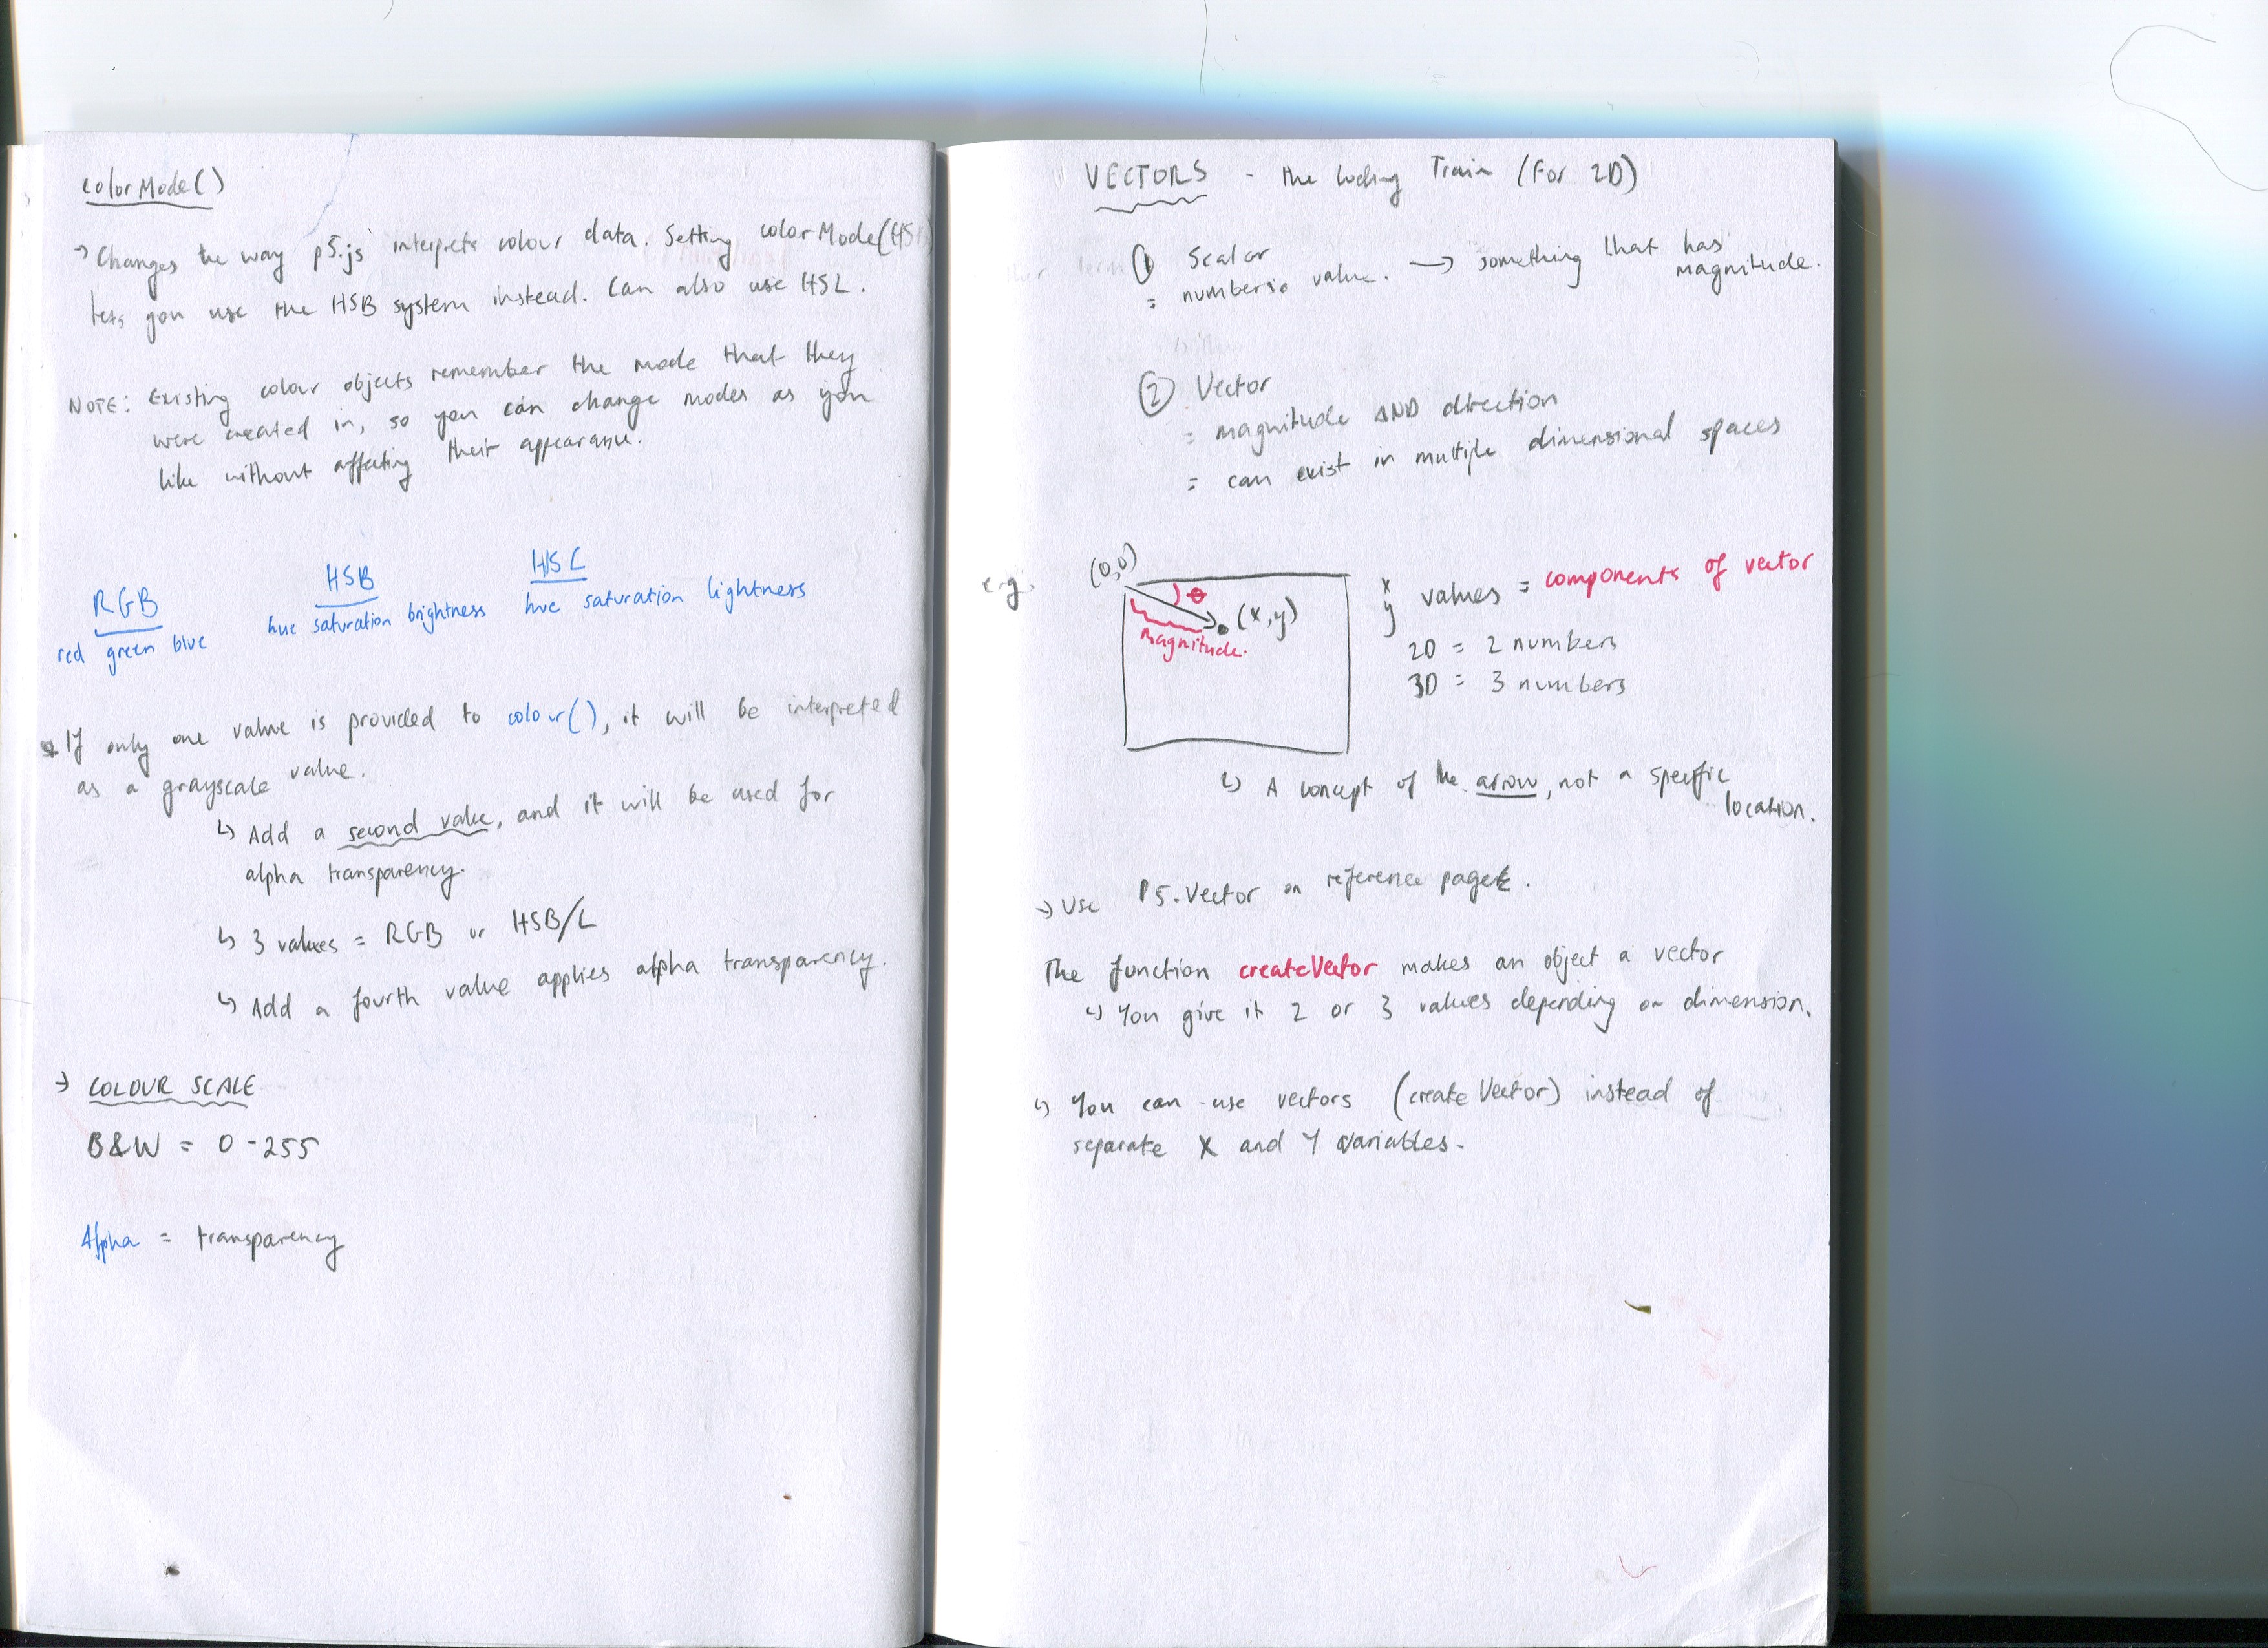 colorMode()
→ Changes the way p5.js interprets colour data. Setting colorMode(HSB
lets you use the HSB system instead. Can also use HSL.
NOTE: Existing colour objects remember the mode that they
were created in, so you can change modes as you
like without affecting their appearance.
RGB
red green blue
HSB
hue saturation brightness
HSL
hue saturation lightness
If only one value is provided to colour(), it will be interpreted
as a grayscale value.
↳ Add a second value, and it will be used for
alpha transparency.
↳ 3 values = RGB or HSB/L
↳ Add a fourth value applies alpha transparency.
→ COLOUR SCALE
B&W = 0 - 255
Alpha = transparency
VECTORS - the Coding Train (For 2D)
① Scalar
= numbers. value. → something that has
magnitude.
② Vector
= magnitude AND direction
= can exist in multiple dimensional spaces
e.g.
(0,0)
θ
(x,y)
magnitude.
x
y values = components of vector
2D = 2 numbers
3D = 3 numbers
↳ A concept of the arrow, not a specific
location.
→ Use P5.Vector on reference page.
The function createVector makes an object a vector
↳ You give it 2 or 3 values depending on dimension.
↳ You can use vectors (createVector) instead of
separate X and Y variables.